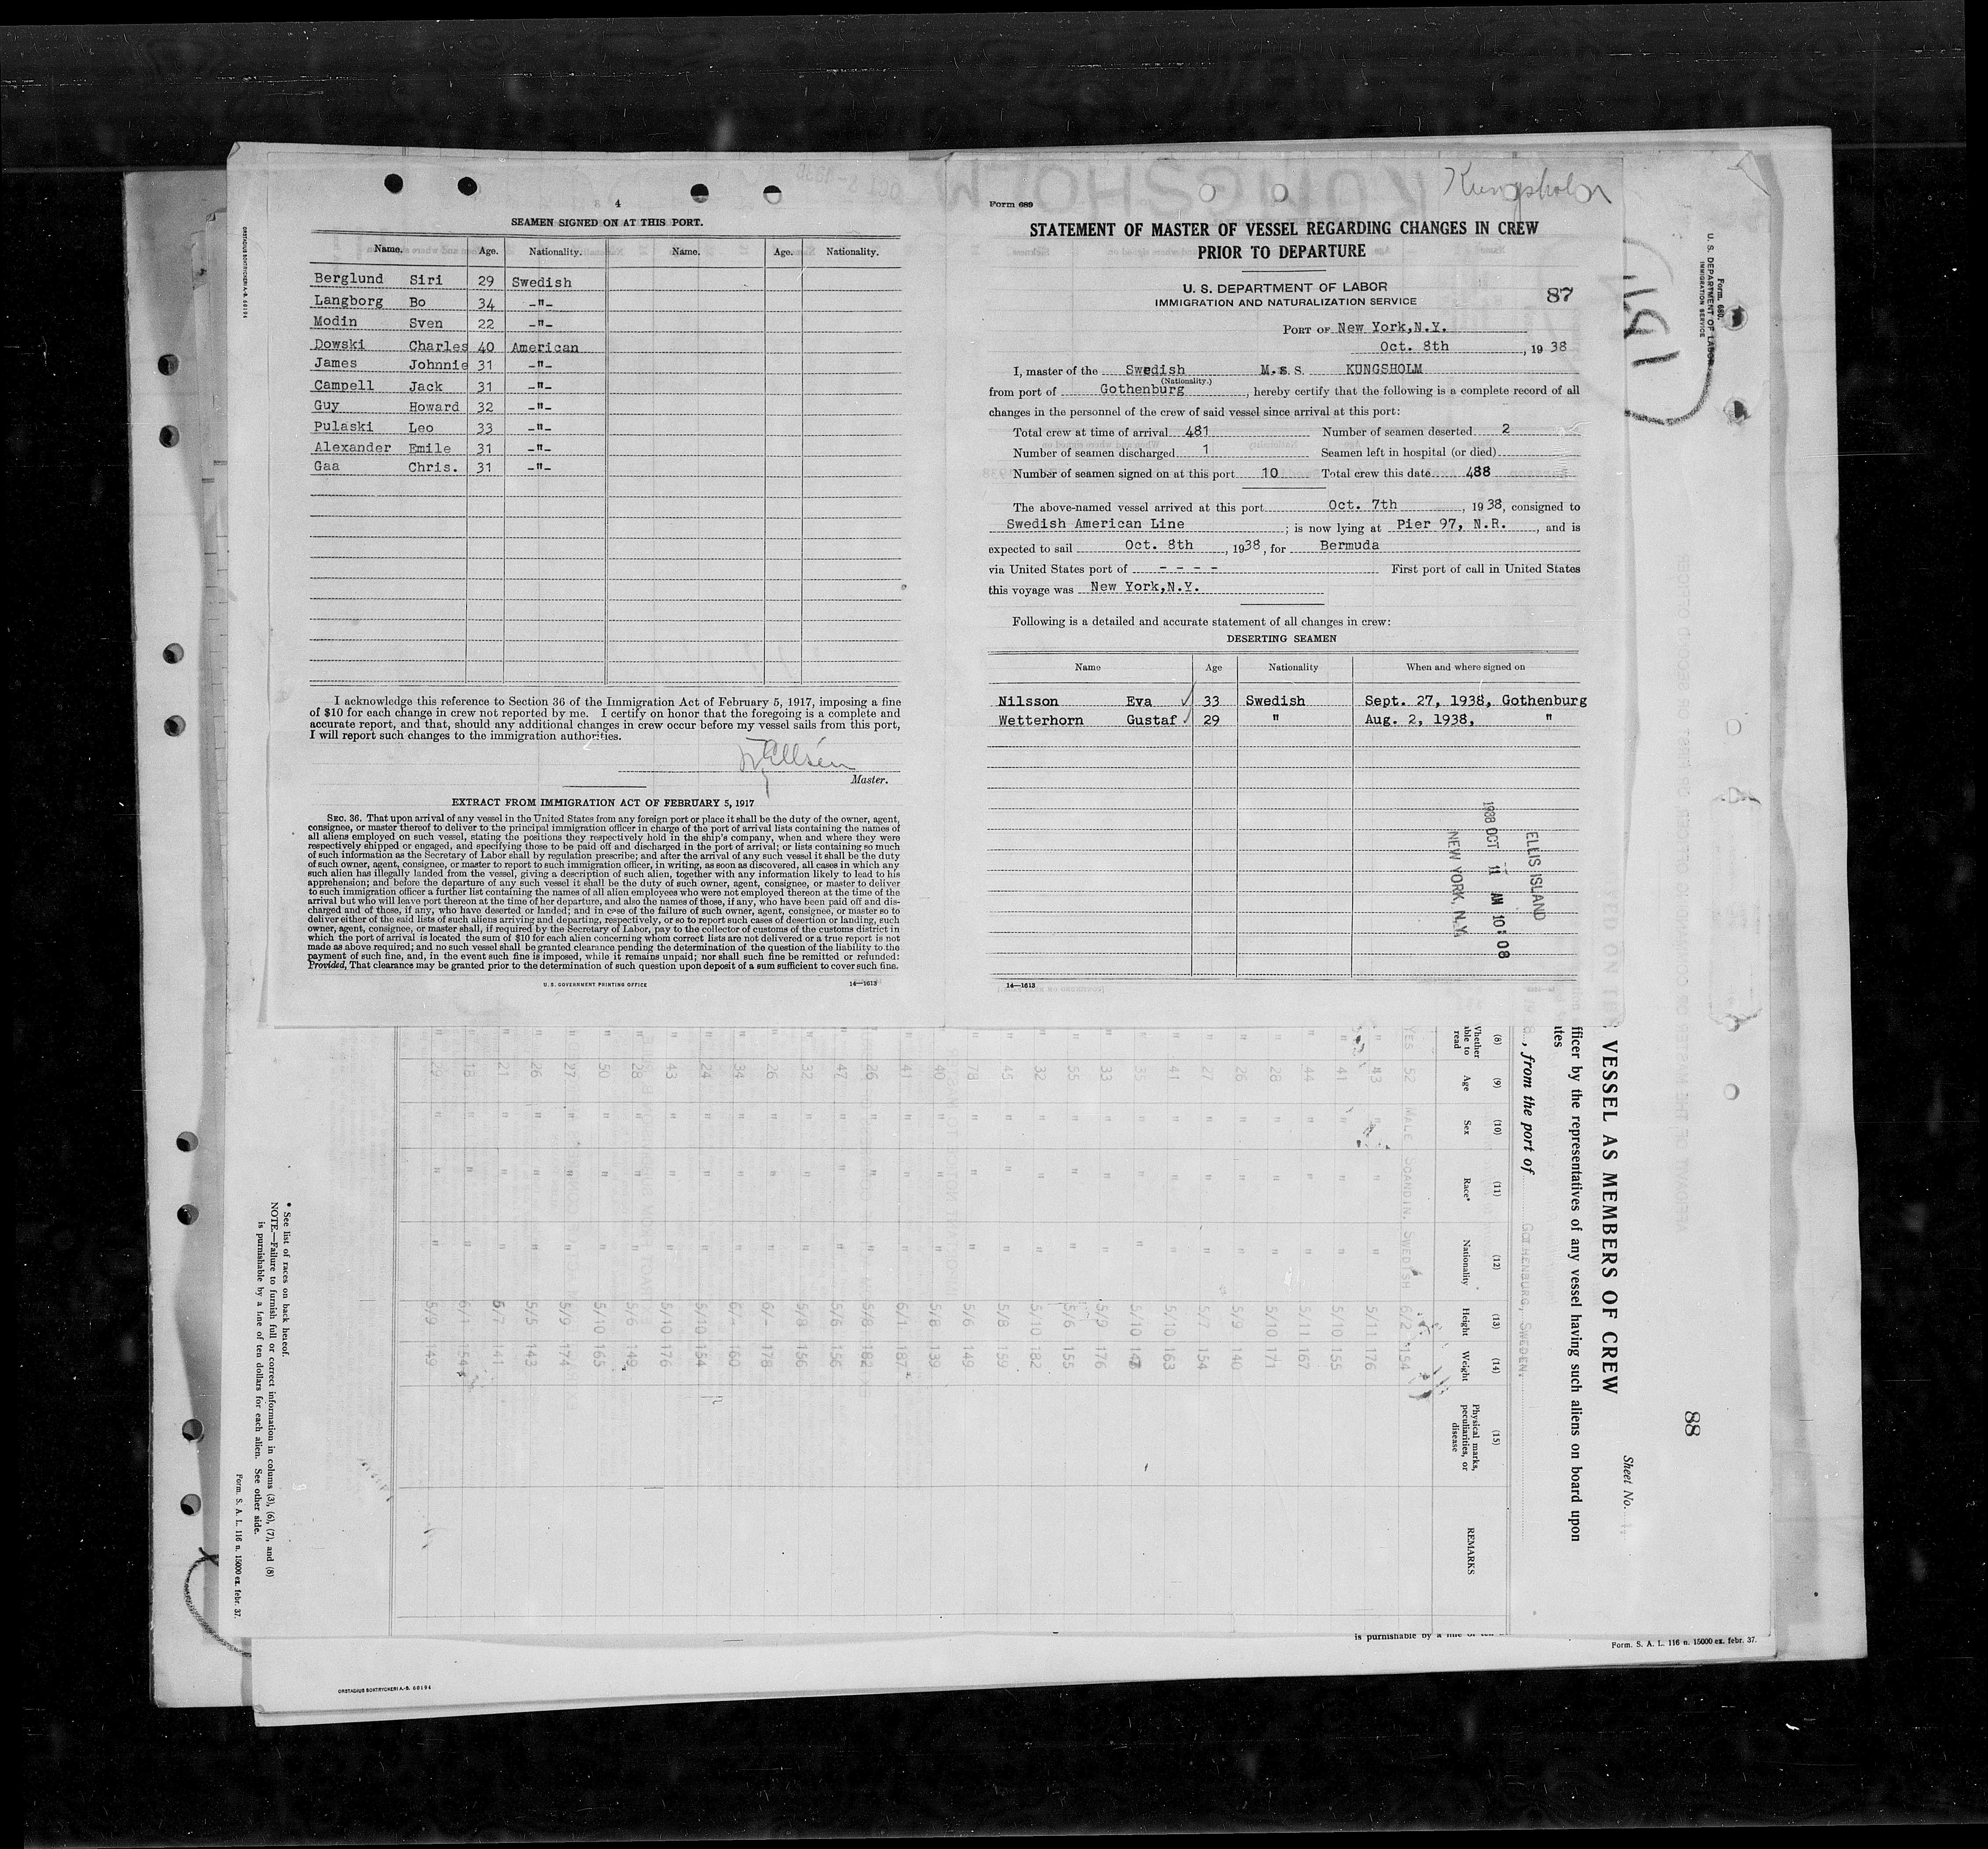 4
SEAMEN SIGNED ON AT THIS PORT.
Name. Age. Nationality. Name. Age. Nationality.
Berglund Siri 29 Swedish
Langborg Bo 34 -"-
Modin Sven 22 -"-
Dowski Charles 40 American
James Johnnie 31 -"-
Campell Jack 31 -"-
Guy Howard 32 -"-
Pulaski Leo 33 -"-
Alexander Emile 31 -"-
Gaa Chris. 31 -"-
I acknowledge this reference to Section 36 of the Immigration Act of February 5, 1917, imposing a fine
of $10 for each change in crew not reported by me. I certify on honor that the foregoing is a complete and
accurate report, and that, should any additional changes in crew occur before my vessel sails from this port,
I will report such changes to the immigration authorities.
Master.
EXTRACT FROM IMMIGRATION ACT OF FEBRUARY 5, 1917
SEC. 36. That upon arrival of any vessel in the United States from any foreign port or place it shall be the duty of the owner, agent,
consignee, or master thereof to deliver to the principal immigration officer in charge of the port of arrival lists containing the names of
all aliens employed on such vessel, stating the positions they respectively hold in the ship's company, when and where they were
respectively shipped or engaged, and specifying those to be paid off and discharged in the port of arrival; or lists containing so much
of such information as the Secretary of Labor shall by regulation prescribe; and after the arrival of any such vessel it shall be the duty
of such owner, agent, consignee, or master to report to such immigration officer, in writing, as soon as discovered, all cases in which any
such alien has illegally landed from the vessel, giving a description of such alien, together with any information likely to lead to his
apprehension; and before the departure of any such vessel it shall be the duty of such owner, agent, consignee, or master to deliver
to such immigration officer a further list containing the names of all alien employees who were not employed thereon at the time of the
arrival but who will leave port thereon at the time of her departure, and also the names of those, if any, who have been paid off and dis-
charged and of those, if any, who have deserted or landed; and in case of the failure of such owner, agent, consignee, or master so to
deliver either of the said lists of such aliens arriving and departing, respectively, or so to report such cases of desertion or landing, such
owner, agent, consignee, or master shall, if required by the Secretary of Labor, pay to the collector of customs of the customs district in
which the port of arrival is located the sum of $10 for each alien concerning whom correct lists are not delivered or a true report is not
made as above required; and no such vessel shall be granted clearance pending the determination of the question of the liability to the
payment of such fine, and, in the event such fine is imposed, while it remains unpaid; nor shall such fine be remitted or refunded:
Provided, That clearance may be granted prior to the determination of such question upon deposit of a sum sufficient to cover such fine.
U. S. GOVERNMENT PRINTING OFFICE 14—1613
Kungsholm
Form 689
STATEMENT OF MASTER OF VESSEL REGARDING CHANGES IN CREW
PRIOR TO DEPARTURE
U. S. DEPARTMENT OF LABOR
IMMIGRATION AND NATURALIZATION SERVICE
87
PORT OF New York,N.Y.
Oct. 8th, 1938
I, master of the Swedish M.S. S. KUNGSHOLM
(Nationality.)
from port of Gothenburg, hereby certify that the following is a complete record of all
changes in the personnel of the crew of said vessel since arrival at this port:
Total crew at time of arrival 481 Number of seamen deserted 2
Number of seamen discharged 1 Seamen left in hospital (or died)
Number of seamen signed on at this port 10 Total crew this date 488
The above-named vessel arrived at this port Oct. 7th, 1938, consigned to
Swedish American Line; is now lying at Pier 97, N.R., and is
expected to sail Oct. 8th, 1938, for Bermuda
via United States port of - - - - First port of call in United States
this voyage was New York,N.Y.
Following is a detailed and accurate statement of all changes in crew:
DESERTING SEAMEN
Name Age Nationality When and where signed on
Nilsson Eva 33 Swedish Sept. 27, 1938, Gothenburg
Wetterhorn Gustaf 29 " Aug. 2, 1938, "
ELLIS ISLAND
1938 OCT 11 AM 10:08
NEW YORK, N.Y.
14—1613
191
Form. 680.
U. S. DEPARTMENT OF LABOR
IMMIGRATION SERVICE
88
Sheet No.
VESSEL AS MEMBERS OF CREW
fficer by the representatives of any vessel having such aliens on board upon
ates
, from the port of GOTHENBURG, SWEDEN.
(8) (9) (10) (11) (12) (13) (14) (15)
Whether able to read Age Sex Race* Nationality Height Weight Physical marks, peculiarities, or disease REMARKS
YES 52 MALE SCANDIN. SWEDISH 6/2 154
" 43 " " " 5/11 176
" 41 " " " 5/10 155
" 44 " " " 5/11 167
" 28 " " " 5/10 171
" 26 " " " 5/9 140
" 27 " " " 5/7 154
" 41 " " " 5/10 163
" " " " 5/10
" 33 " " " 5/9 176
" 55 " " " 5/6 155
" 32 " " " 5/10 182
" 45 " " " 5/8 159
" 78 " " " 5/6 149
" 40 " " " 5/8 139
" 41 " " " 6/1 187
" 26 " " " 5/8 182
" 47 " " " 5/6 156
" 32 " " " 5/8 156
" 26 " " " 6/- 178
" 34 " " " 6/- 160
" 24 " " " 5/10 154
" 43 " " " 5/10 176
" 28 " " " 5/6 149
" 50 " " " 5/10 165
" 27 " " " 5/9 174
" 26 " " " 5/5 143
" 21 " " " 5/7 141
" 18 " " " 6/1 154
" 29 " " " 5/9 149
* See list of races on back hereof.
NOTE.—Failure to furnish full or correct information in colums (3), (6), (7), and (8)
is purnishable by a fine of ten dollars for each alien. See other side.
Form. S. A. L. 116 n. 15000 ex. febr. 37.
is purnishable by a
Form. S. A. L. 116 n. 15000 ex. febr. 37.
ORSTADIUS BOKTRYCKERI A.-B. 60194
ORSTADIUS BOKTRYCKERI A.-B. 60194